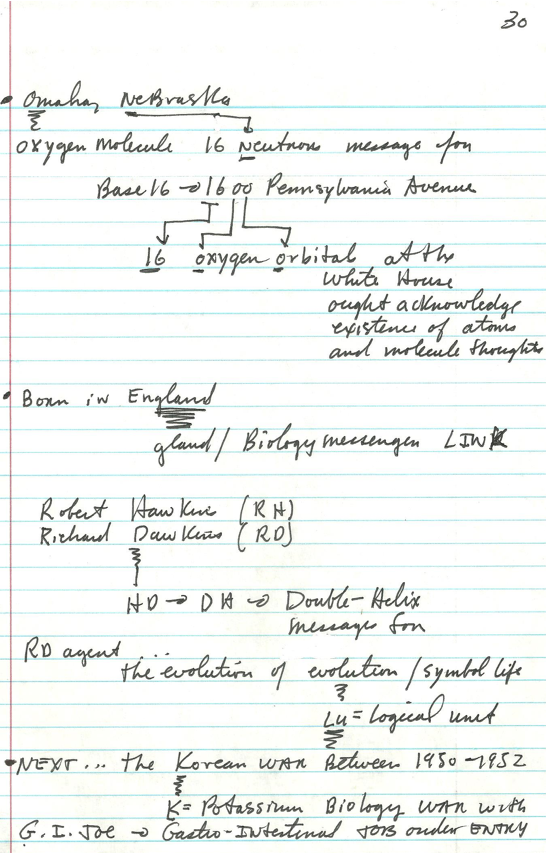 30
• Omaha, NeBraska
oxygen molecule 16 Neutrons message for
Base 16 → 1600 Pennsylvania Avenue
16 oxygen orbital at the
White House
ought acknowledge
existence of atoms
and molecule thoughts
• Born in England
gland / Biology messenger LINK
Robert Hawkins (RH)
Richard Dawkins (RD)
HD → DH → Double-Helix
messages for
RD agent ...
the evolution of evolution / symbol life
Lu = Logical unit
• NEXT ... the Korean WAR Between 1950-1952
K = Potassium Biology WAR with
G.I. Joe → Gastro-Intestinal JOB under ENTRY